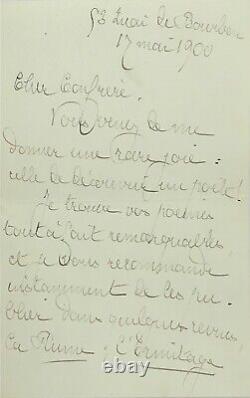 53 Quai de Bourbon
17 mai 1900
Cher Confrère.
Vous venez de me
donner une rare joie:
celle de découvrir un poète!
Je trouve vos poèmes
tout à fait remarquables,
et je vous recommande
instamment de les pu-
blier dans quelques revues,
La Plume, l'Ermitage
© ebay